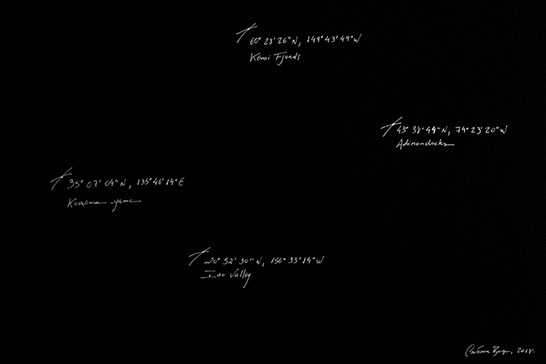 60° 23' 26" N, 149° 43' 49" W
Kenai Fjords
43° 38' 44" N, 74° 23' 20" W
Adirondacks
35° 07' 04" N, 135° 46' 14" E
yama
20° 52' 30" N, 156° 33' 14" W
Iao Valley
2018.